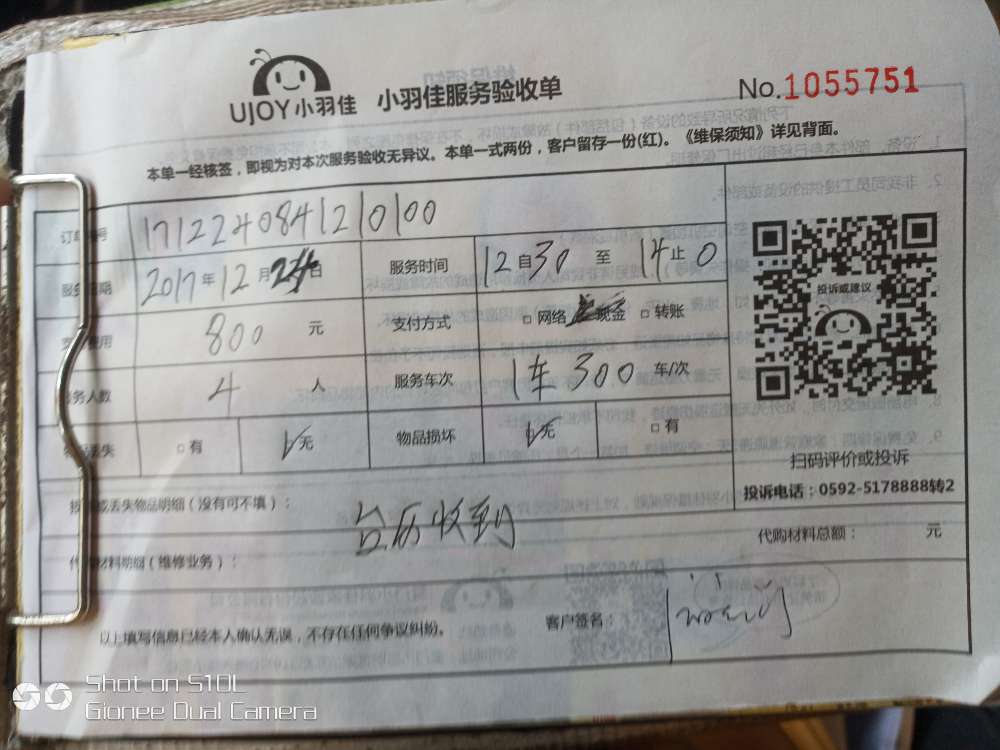 UJOY小羽佳 小羽佳服务验收单 No.1055751
本单一经核签，即视为对本次服务验收无异议。本单一式两份，客户留存一份(红)。《维保须知》详见背面。
订单编号 171224084120100
服务日期 2017年12月24日 服务时间 12自30至14止0
费用 800元 支付方式 □网络 现金 □转账
服务人数 4人 服务车次 1车300车/次
丢失 □有 √无 物品损坏 √无 □有
投诉或建议
扫码评价或投诉
投诉电话：0592-5178888转2
或丢失物品明细（没有可不填）：
台历收到
代购材料明细（维修业务）： 代购材料总额： 元
以上填写信息已经本人确认无误，不存在任何争议纠纷。 客户签名：
Shot on S10L
Gionee Dual Camera